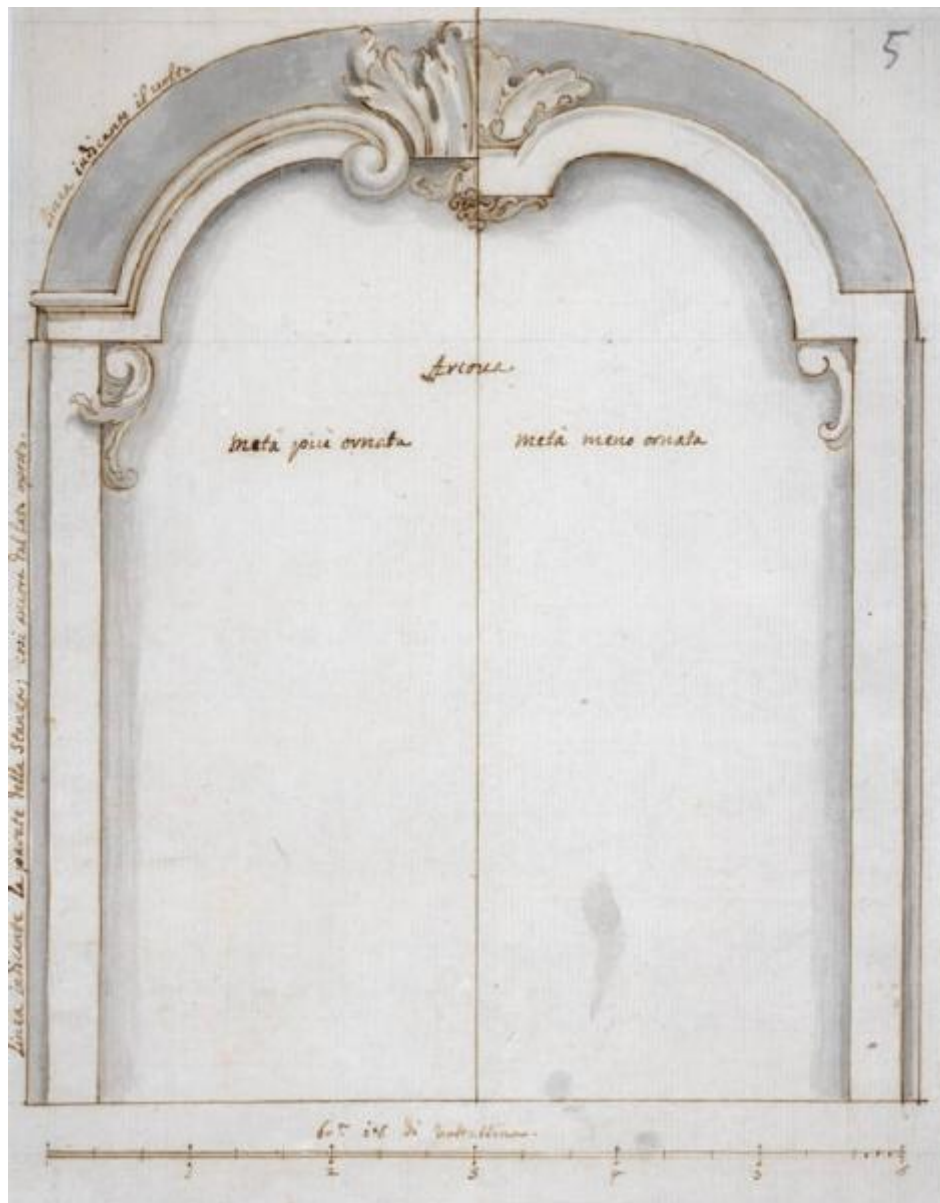 5
Linea indicante il volto
Arcova
metà più ornata
metà meno ornata
Linea indicante la parete della Stanza; così ancora dal lato opposto.
di
1 2 3 4 5